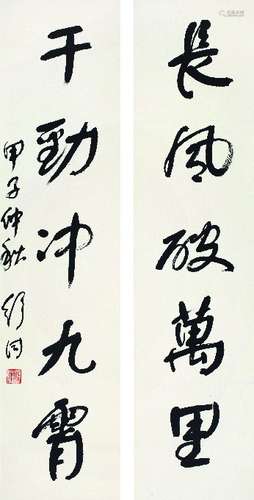 長風破萬里
干勁冲九霄
甲子仲秋 舒同